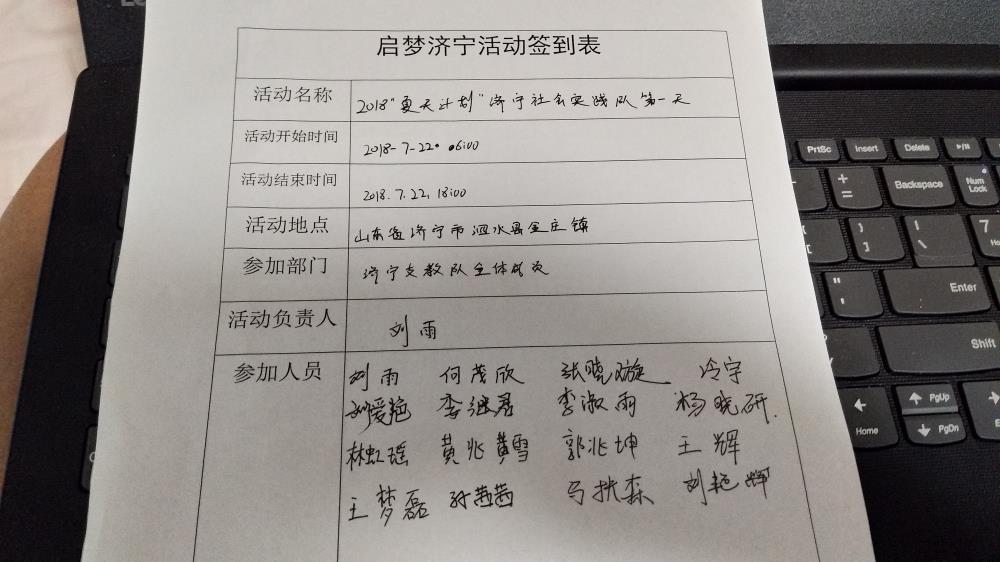 启梦济宁活动签到表
活动名称 2018"夏天计划"济宁社会实践队第一天
活动开始时间 2018-7-22 06:00
活动结束时间 2018.7.22, 18:00
活动地点 山东省济宁市泗水县金庄镇
参加部门 济宁支教队全体成员
活动负责人 刘雨
参加人员 刘雨 何茂欣 张晓璇 冷宇
刘爱艳 李继君 李淑雨 杨晓研.
林虹瑶 黄兆雪 郭兆坤 王辉
王梦磊 孙茜茜 马扶森 刘艳辉
PrtSc Insert Delete
+ = Backspace Num Lock 7
} ] | \
" ' Enter
Shift
PgUp
Home PgDn